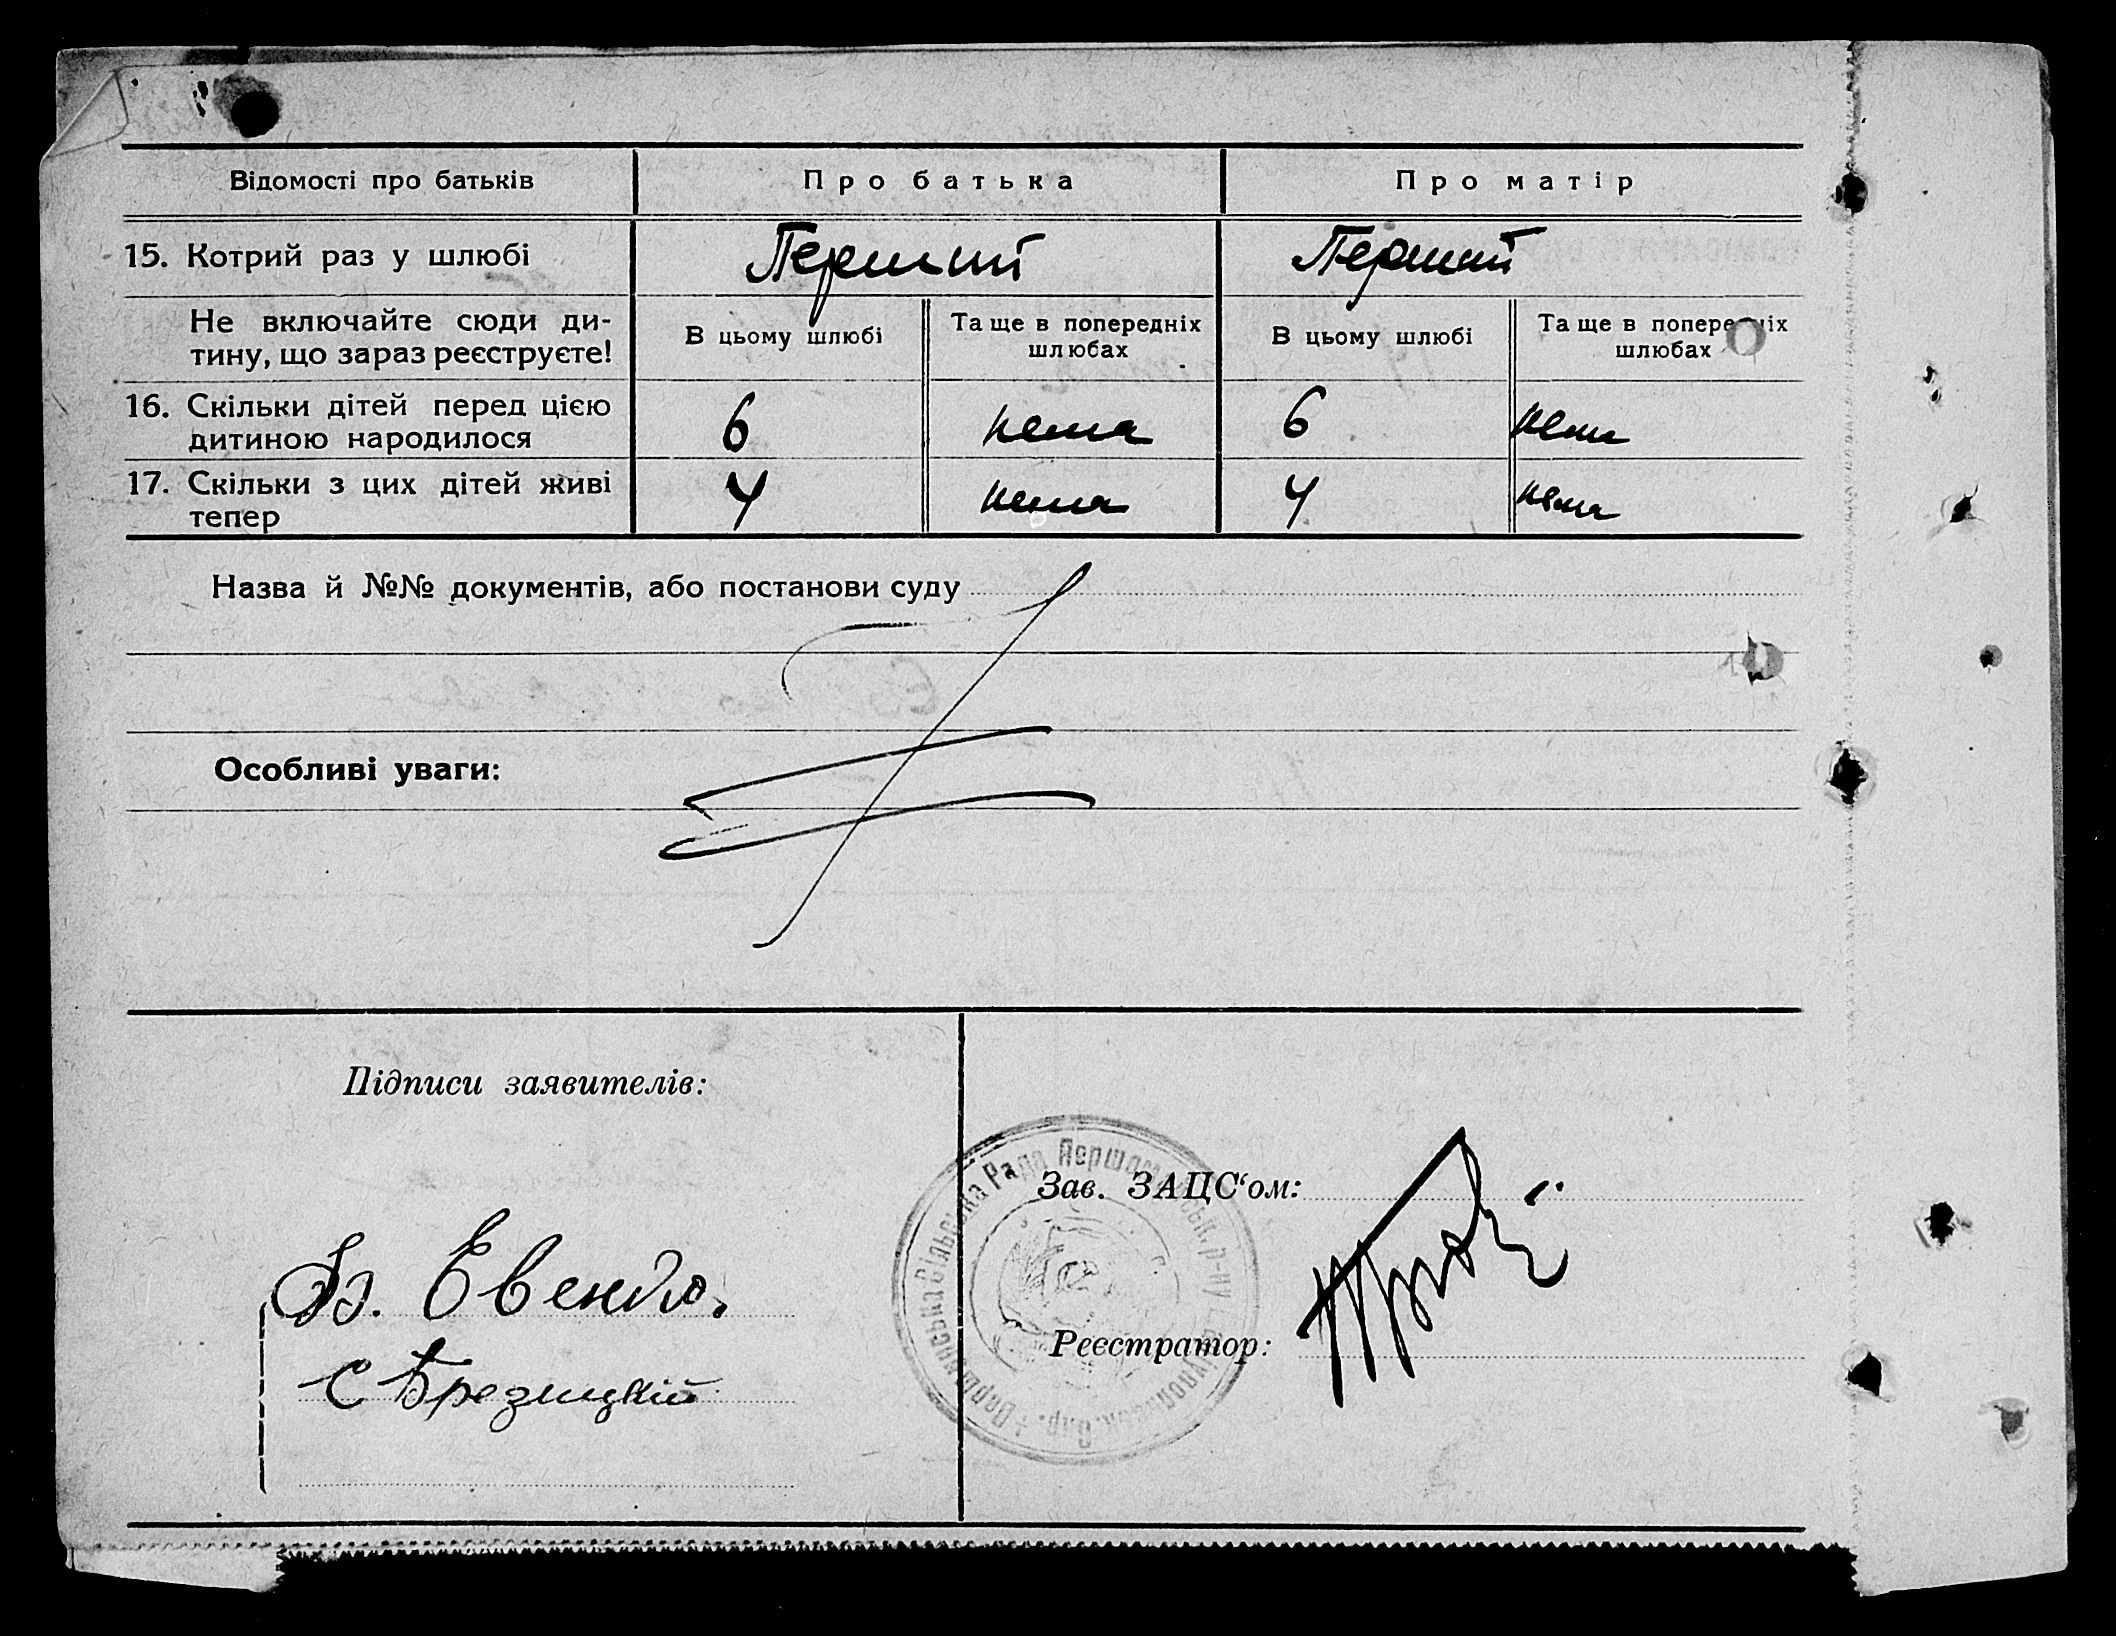 Відомості про батьків	Про батька	Про матір
15. Котрий раз у шлюбі	Перший	Перший
Не включайте сюди ди-
тину, що зараз реєструєте!
В цьому шлюбі	Та ще в попередніх
шлюбах
В цьому шлюбі	Та ще в попередніх
шлюбах
16. Скільки дітей перед цією
дитиною народилося	6	нема	6	нема
17. Скільки з цих дітей живі
тепер	4	нема	4	нема
Назва й №№ документів, або постанови суду
Особливі уваги:
Підписи заявителів:
Евендо.
С Брезицкій
Зав. ЗАЦС‘ом:
Реєстратор:
Сільська Рада Першомайськ. р-ну